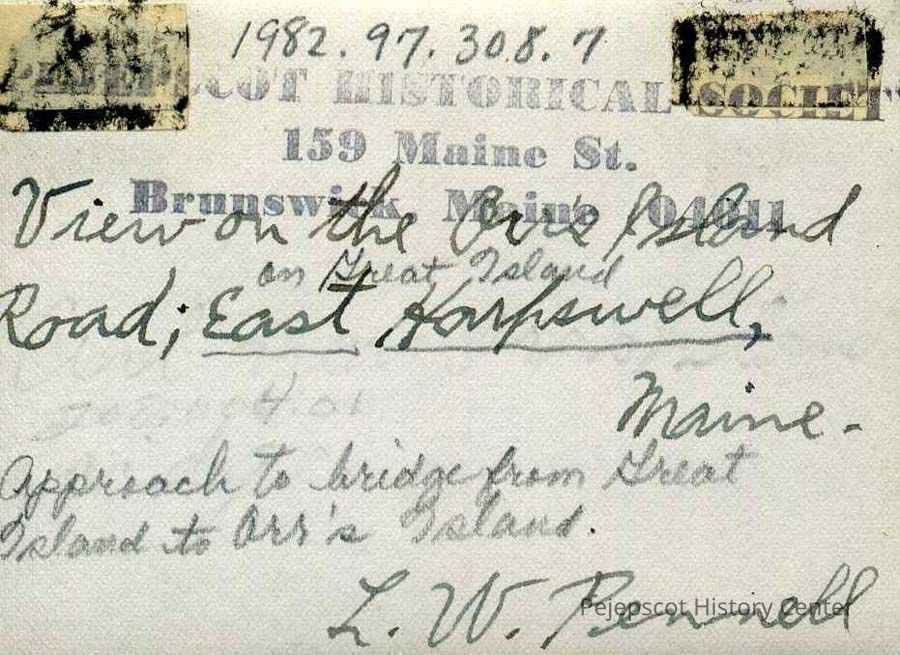 1982.97.308.7
PEJEPSCOT HISTORICAL SOCIETY
159 Maine St.
Brunswick Maine 04011
View on the Orr's Island
on Great Island
Road; East Harpswell,
Maine.
Approach to bridge from Great
Island to Orr's Island.
L. W. Pennell
Pejepscot History Center